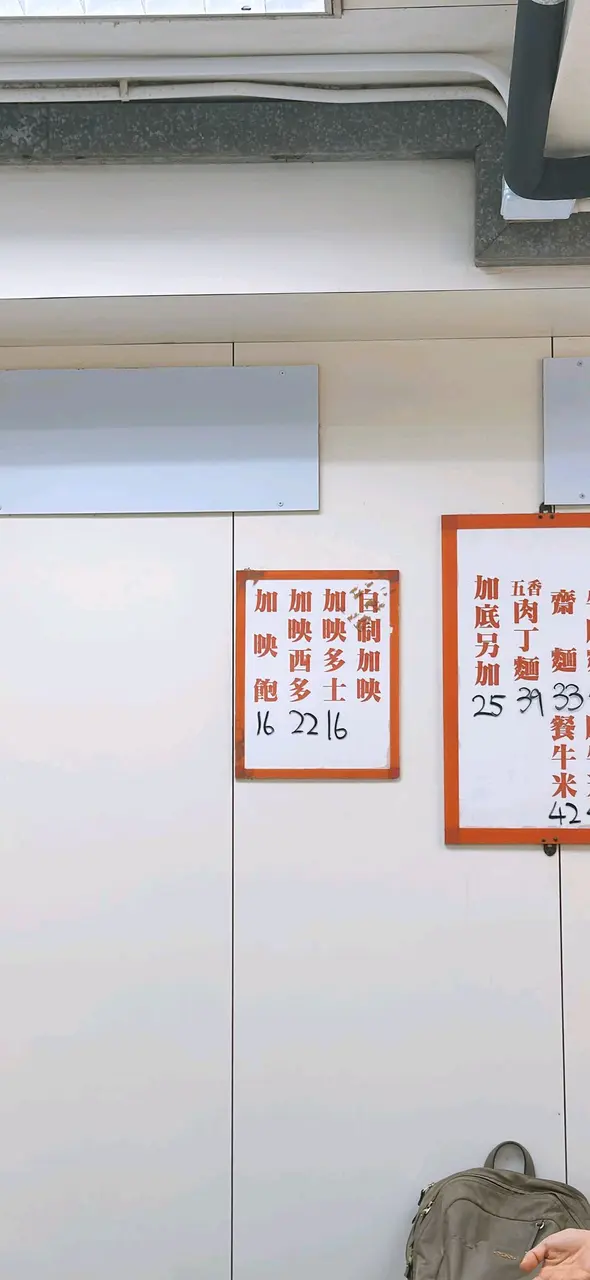 自制加映
加映多士
16
加映西多
22
加映飽
16
齋麵
33
餐牛米
42
五香肉丁麵
39
加底另加
25